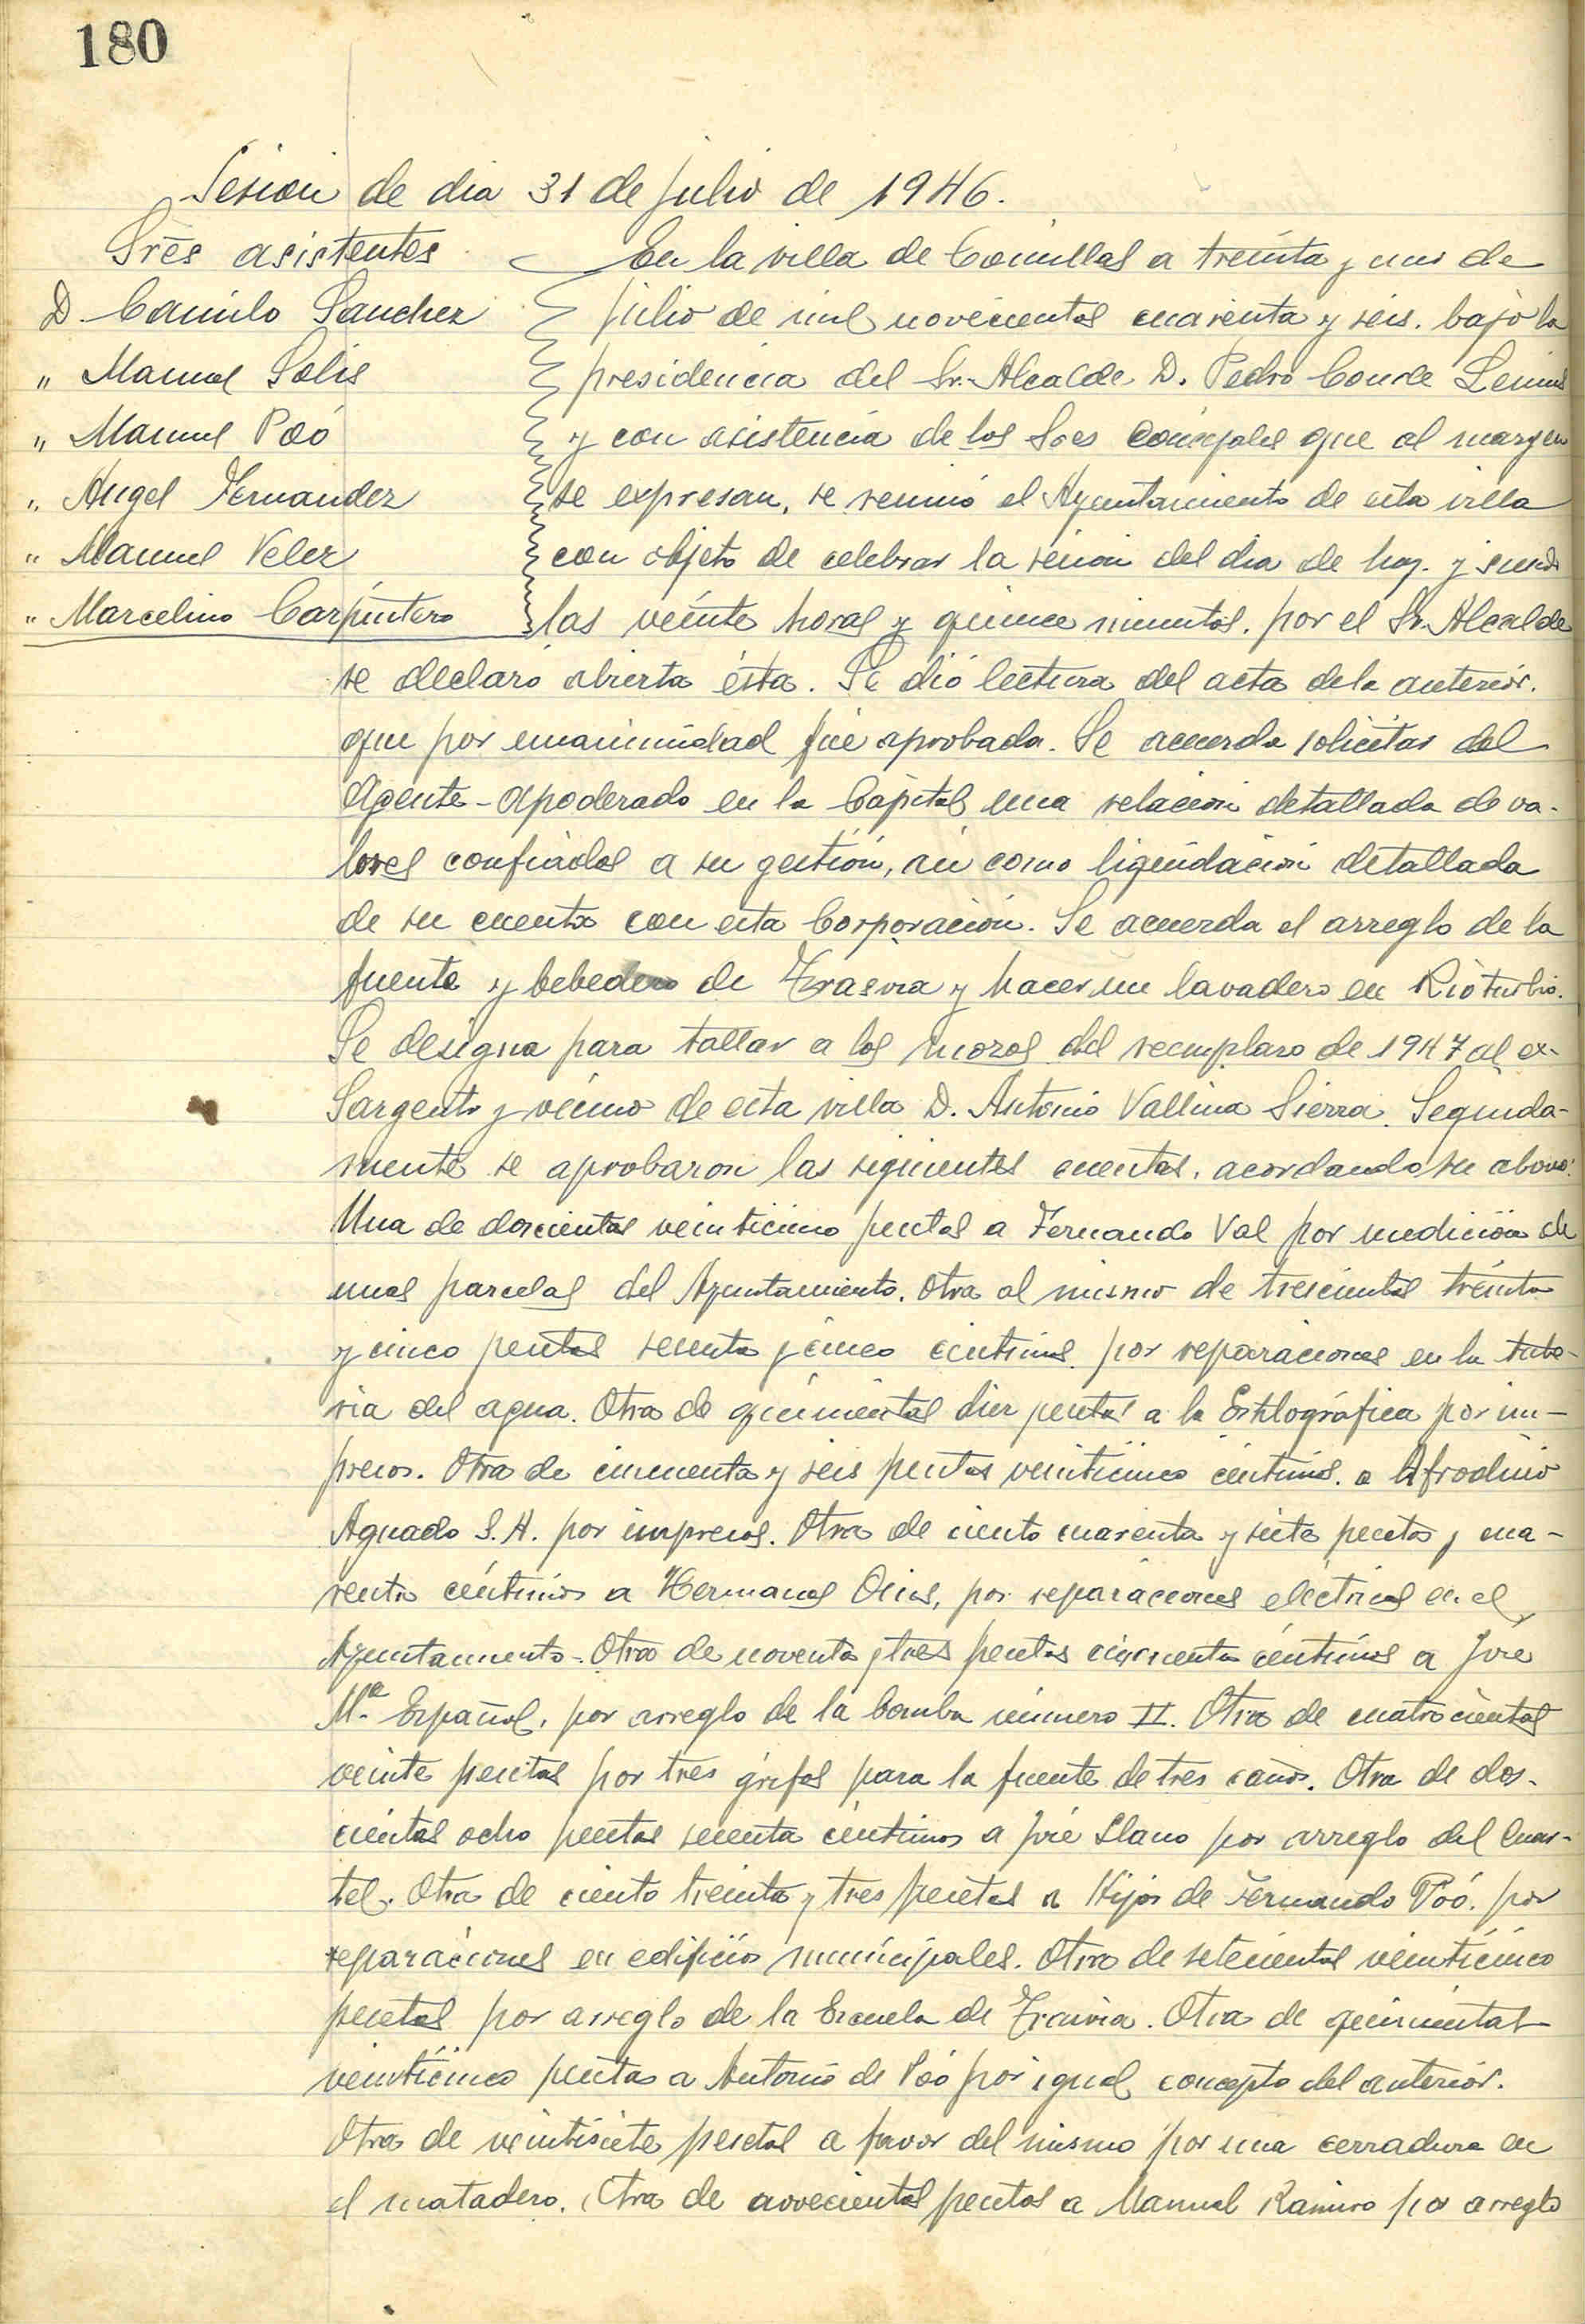 180
Sesion de dia 31 de julio de 1946.
Sres asistentes
D. Camilo Sanchez
" Manuel Solis
" Manuel Poó
" Angel Fernandez
" Manuel Velez
" Marcelino Carpintero
En la villa de Comillas a treinta y uno de
julio de mil novecientos cuarenta y seis. bajo la
presidencia del Sr. Alcalde D. Pedro Conde
y con asistencia de los Sres concejales que al margen
se expresan, se reunió el Ayuntamiento de esta villa
con objeto de celebrar la sesion del dia de hoy. y siendo
las veinte horas y quince minutos. por el Sr. Alcalde
se declaró abierta ésta. Se dió lectura del acta de la anterior.
que por unanimidad fué aprobada. Se acuerda solicitar del
Agente-apoderado en la Capital una relacion detallada de va-
lores confiados a su gestión, asi como liquidación detallada
de su cuenta con esta Corporación. Se acuerda el arreglo de la
fuente y bebedero de Trasvia y hacer un lavadero en Rioturbio.
Se designa para tallar a los mozos del reemplazo de 1947 al ex-
Sargento y vecino de esta villa D. Antonio Vallina Sierra. Seguida-
mente se aprobaron las siguientes cuentas, acordando su abono:
Una de doscientas veinticinco pesetas a Fernando Val por medición de
unas parcelas del Ayuntamiento. Otra al mismo de trescientas treinta
y cinco pesetas y cinco centimos por reparaciones en la tube-
ria del agua. Otra de quinientas diez pesetas a la Estilográfica por im-
presos. Otra de cincuenta y seis pesetas veinticinco centimos. a Afrodisio
Aguado S.A. por impresos. Otra de ciento cuarenta y siete pesetas y cua-
renta céntimos a Hermanos por reparaciones eléctricas en el
Ayuntamiento. Otra de noventa y tres pesetas cincuenta céntimos a José
Mª Español, por arreglo de la bomba número II. Otra de cuatrocientas
veinte pesetas por tres grifos para la fuente de tres caños. Otra de dos-
cientas ocho pesetas céntimos a José Llano por arreglo del Cuar-
tel. Otra de ciento treinta y tres pesetas a Hijos de Fernando Poó. por
reparaciones en edificios municipales. Otra de setecientas veinticinco
pesetas por arreglo de la Escuela de Trasvia. Otra de quinientas
veinticinco pesetas a Antonio de Poó por igual concepto del anterior.
Otra de veintisiete pesetas a favor del mismo por una cerradura en
el matadero. Otra de novecientas pesetas a Manuel Ramiro por arreglo